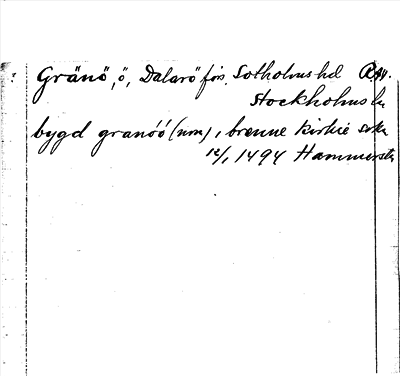 Gränö, ö, Dalarö förs. Sotholms hd
Stockholms län
bygd granöö (nm), brenne kirkie sokn
12/1 1494 Hammersta